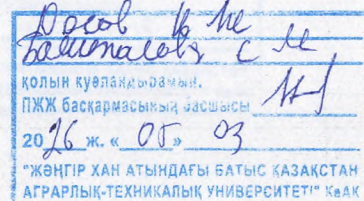 Досов
қолын куәландырамын.
ПЖЖ басқармасының басшысы
2026 ж. «05» 03
"ЖӘҢГІР ХАН АТЫНДАҒЫ БАТЫС ҚАЗАҚСТАН
АГРАРЛЫҚ-ТЕХНИКАЛЫҚ УНИВЕРСИТЕТІ" КеАҚ